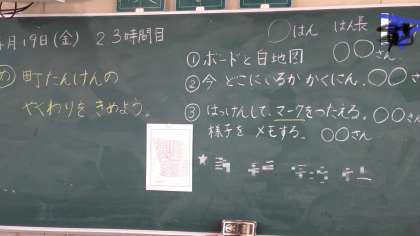 月19日(金) 2.3時間目
め 町たんけんの
やくわりをきめよう。
○はん はん長
①ボードと白地図 ○○さん
②今どこにいるかかくにん。○○さん
③はっけんして、マークをつたえる。○○さん
様子をメモする。○○さん